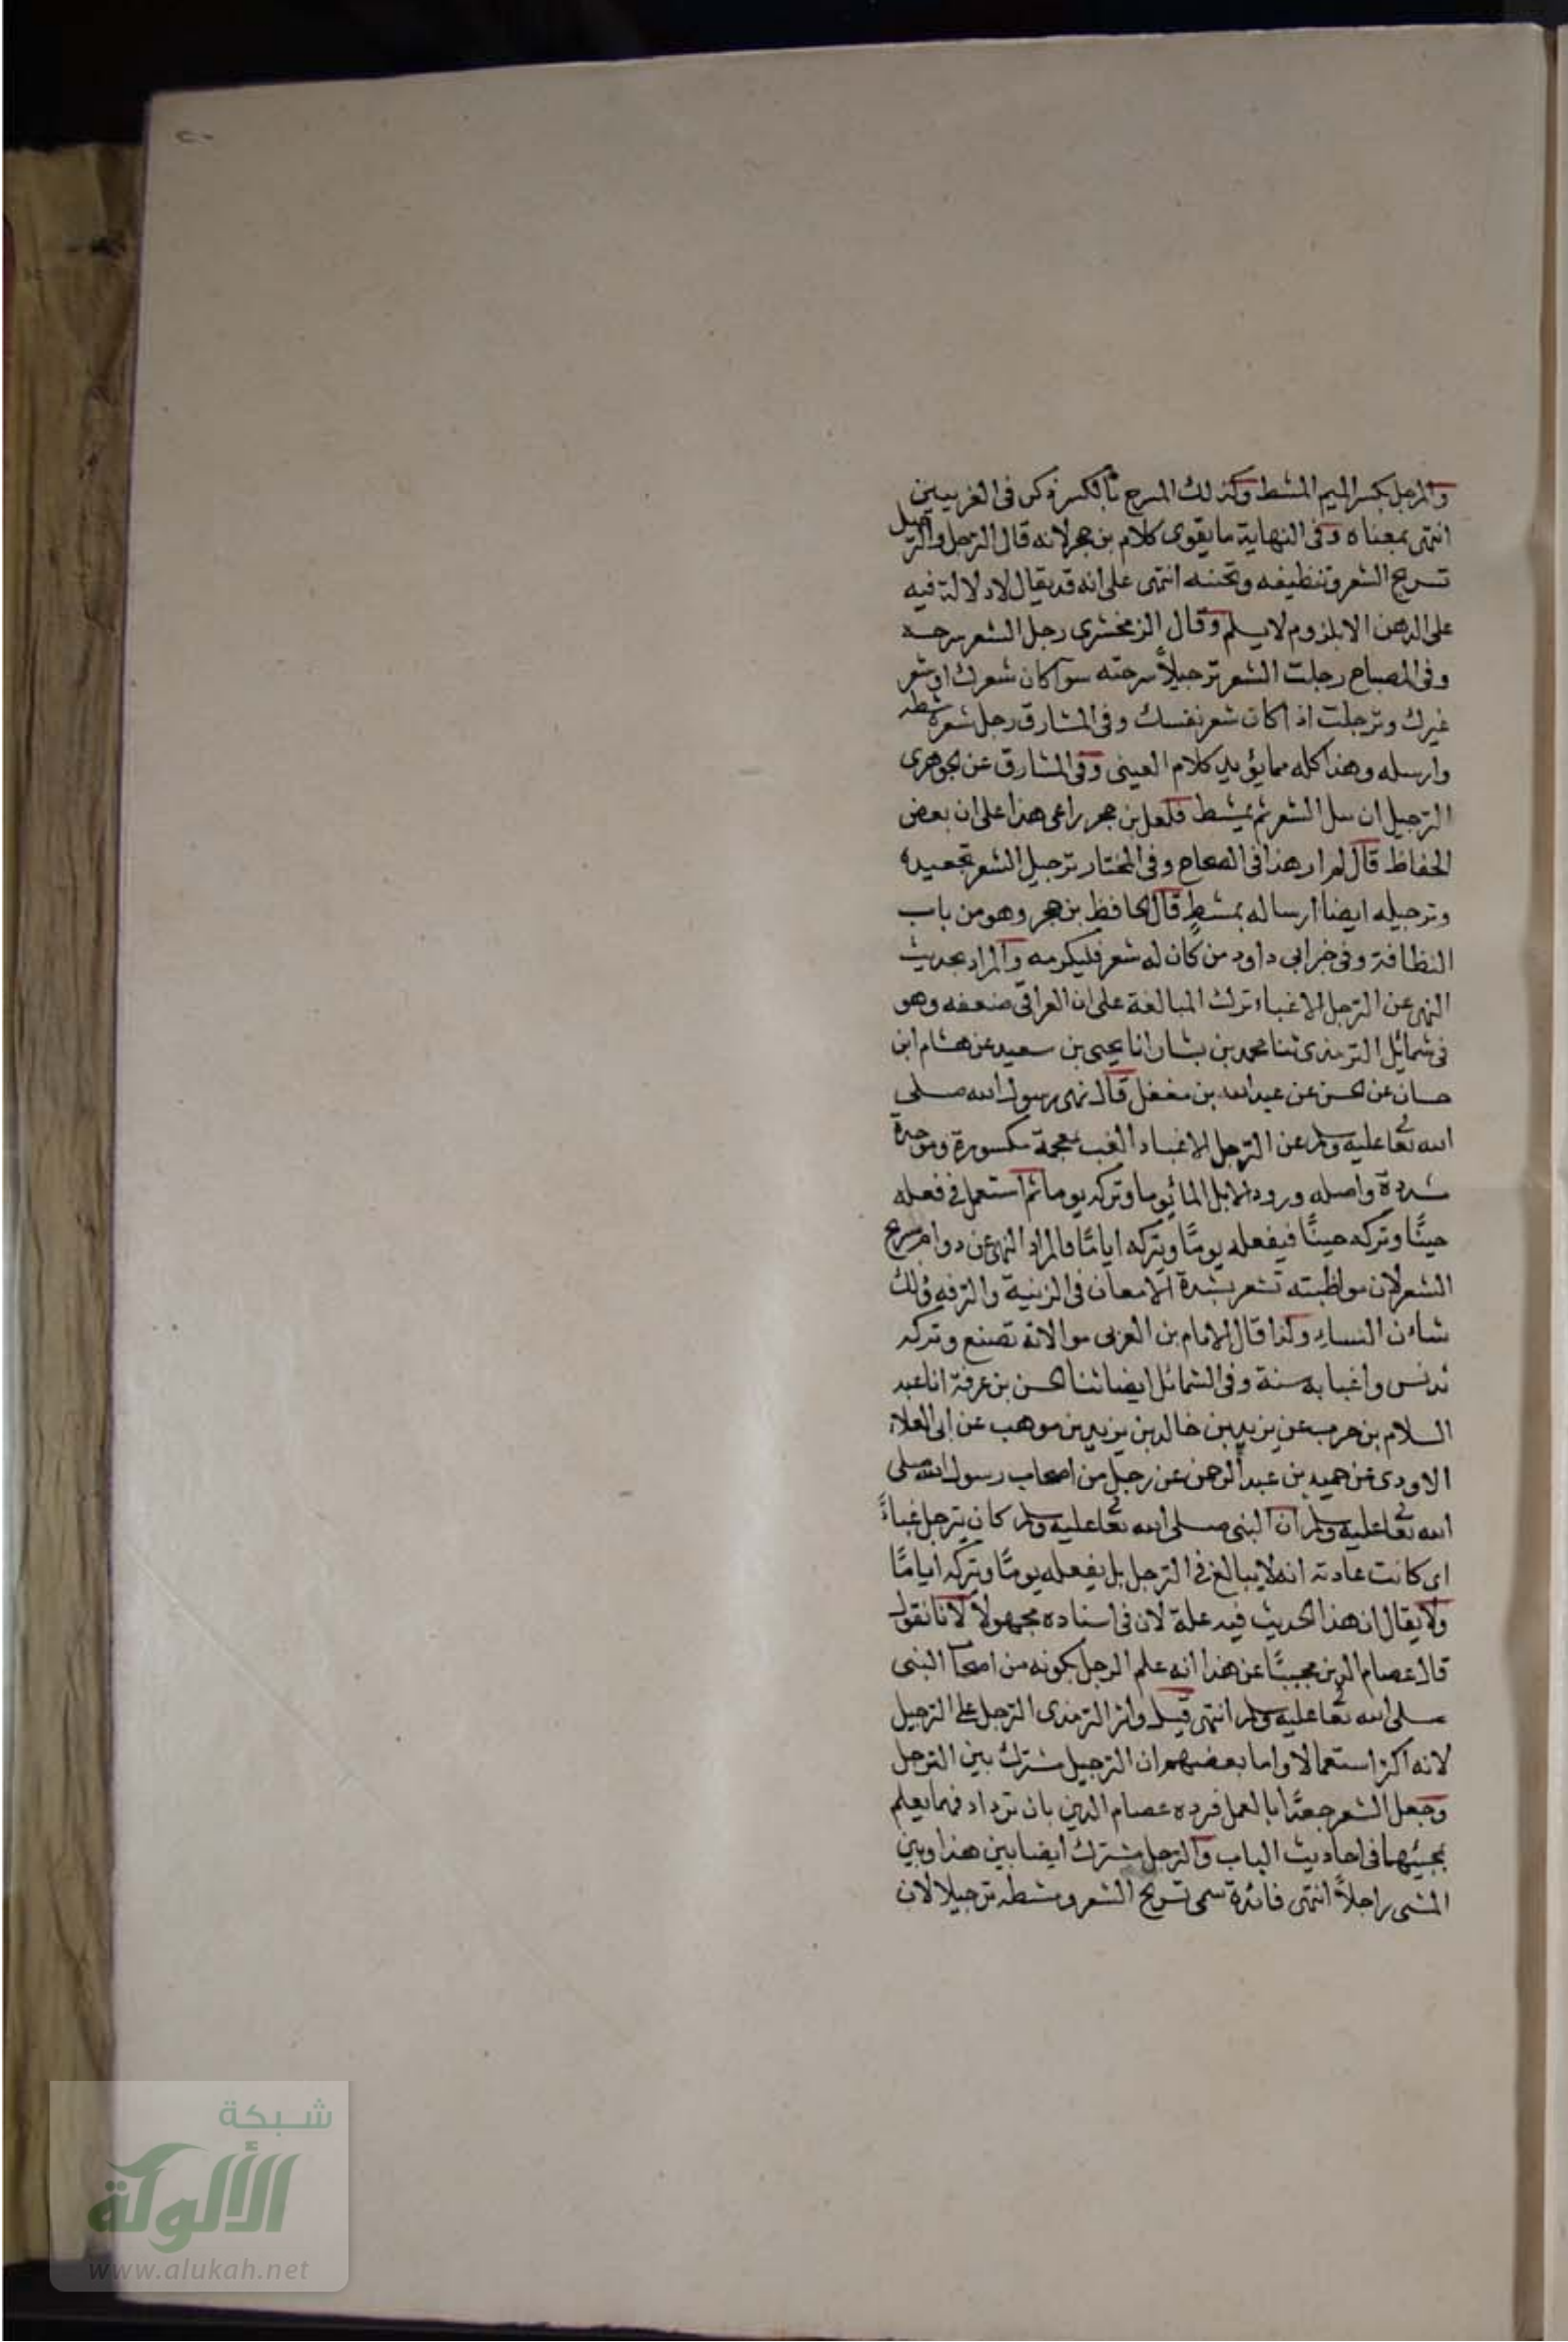 ٢٠
والمرجل بكسر الميم المشط وكذلك المسرح بالكسر ذكره فى الغريبين
انتهى بمعناه وفى النهاية ما يقوى كلام بن حجر لانه قال الترجل والترجيل
تسريح الشعر وتنظيفه وتحسنه انتهى على انه قد يقال لا دلالة فيه
على الدهن الا بلزوم لا يسلم وقال الزمخشرى رجل الشعر سرحه
وفى المصباح رجلت الشعر ترجيلاً سرحته سوآ كان شعرك او شعر
غيرك وترجلت اذا كان شعر نفسك وفى المشارق رجل شعره مشطه
وارسله وهذا كله مما يؤيد كلام العينى وفى المشارق عن الجوهرى
الترجيل ان يبل الشعر ثم يمشط فلعل بن حجر راعى هذا على ان بعض
الحفاظ قال لم ار هذا فى الصحاح وفى المختار ترجيل الشعر تجعيده
وترجيله ايضا ارساله بمشطٍ قال الحافظ بن حجر وهو من باب
النظافة وفى خبر ابى داود من كان له شعر فليكرمه والمراد بحديث
النهى عن الترجل الا غبا ترك المبالغة على ان العراقى ضعفه وهو
فى شمائل الترمذى ثنا محمد بن بشار انا يحيى بن سعيد عن هشام ابن
حسان عن الحسن عن عبد الله بن مغفل قال نهى رسول الله صلى
الله تعا عليه وسلم عن الترجل الا غبا والغب بمعجمة مكسورة وموحدة
مشددة واصله ورود الابل الماء يوما وتركه يوما ثم استعمل فى فعله
حينًا وتركه حينًا فيفعله يومًا ويتركه ايامًا فالمراد النهى عن دوام تسريح
الشعر لان مواظبته تشعر بشدة الامعان فى الزينة والترفه وذلك
شاءن النساء وكذا قال الامام بن العربى موالاته تصنع وتركه
تدنس واغبابه سنة وفى الشمائل ايضا ثنا الحسن بن عرفة انا عبد
السلام بن حرب عن يزيد بن خالد بن يزيد بن موهب عن ابى العلاء
الاودى عن حميد بن عبد الرحمن عن رجل من اصحاب رسول الله صلى
الله تعا عليه وسلم ان النبى صلى الله تعا عليه وسلم كان يترجل غباءً
اى كانت عادته انه لا يبالغ فى الترجل بل يفعله يومًا وتركه ايامًا
ولا يقال ان هذا الحديث فيه علة لان فى اسناده مجهولاً لانا نقول
قال عصام الدين مجيبًا عن هذا انه علم الرجل بكونه من اصحا النبى
صلى الله تعا عليه وسلم انتهى قيل واثر الترمذى الترجل على الترجيل
لانه اكثر استعمالا واما بعضهم ان الترجيل مشترك بين الترجل
وجعل الشعر جعدًا بالعمل فرده عصام الدين بان ترداد فهما يعلم
بمجيئهما فى احاديث الباب والترجل مشترك ايضا بين هذا وبين
المشى راجلاً انتهى فائدة سمى تسريح الشعر ومشطه ترجيلا لان
شبكة
الألوكة
www.alukah.net